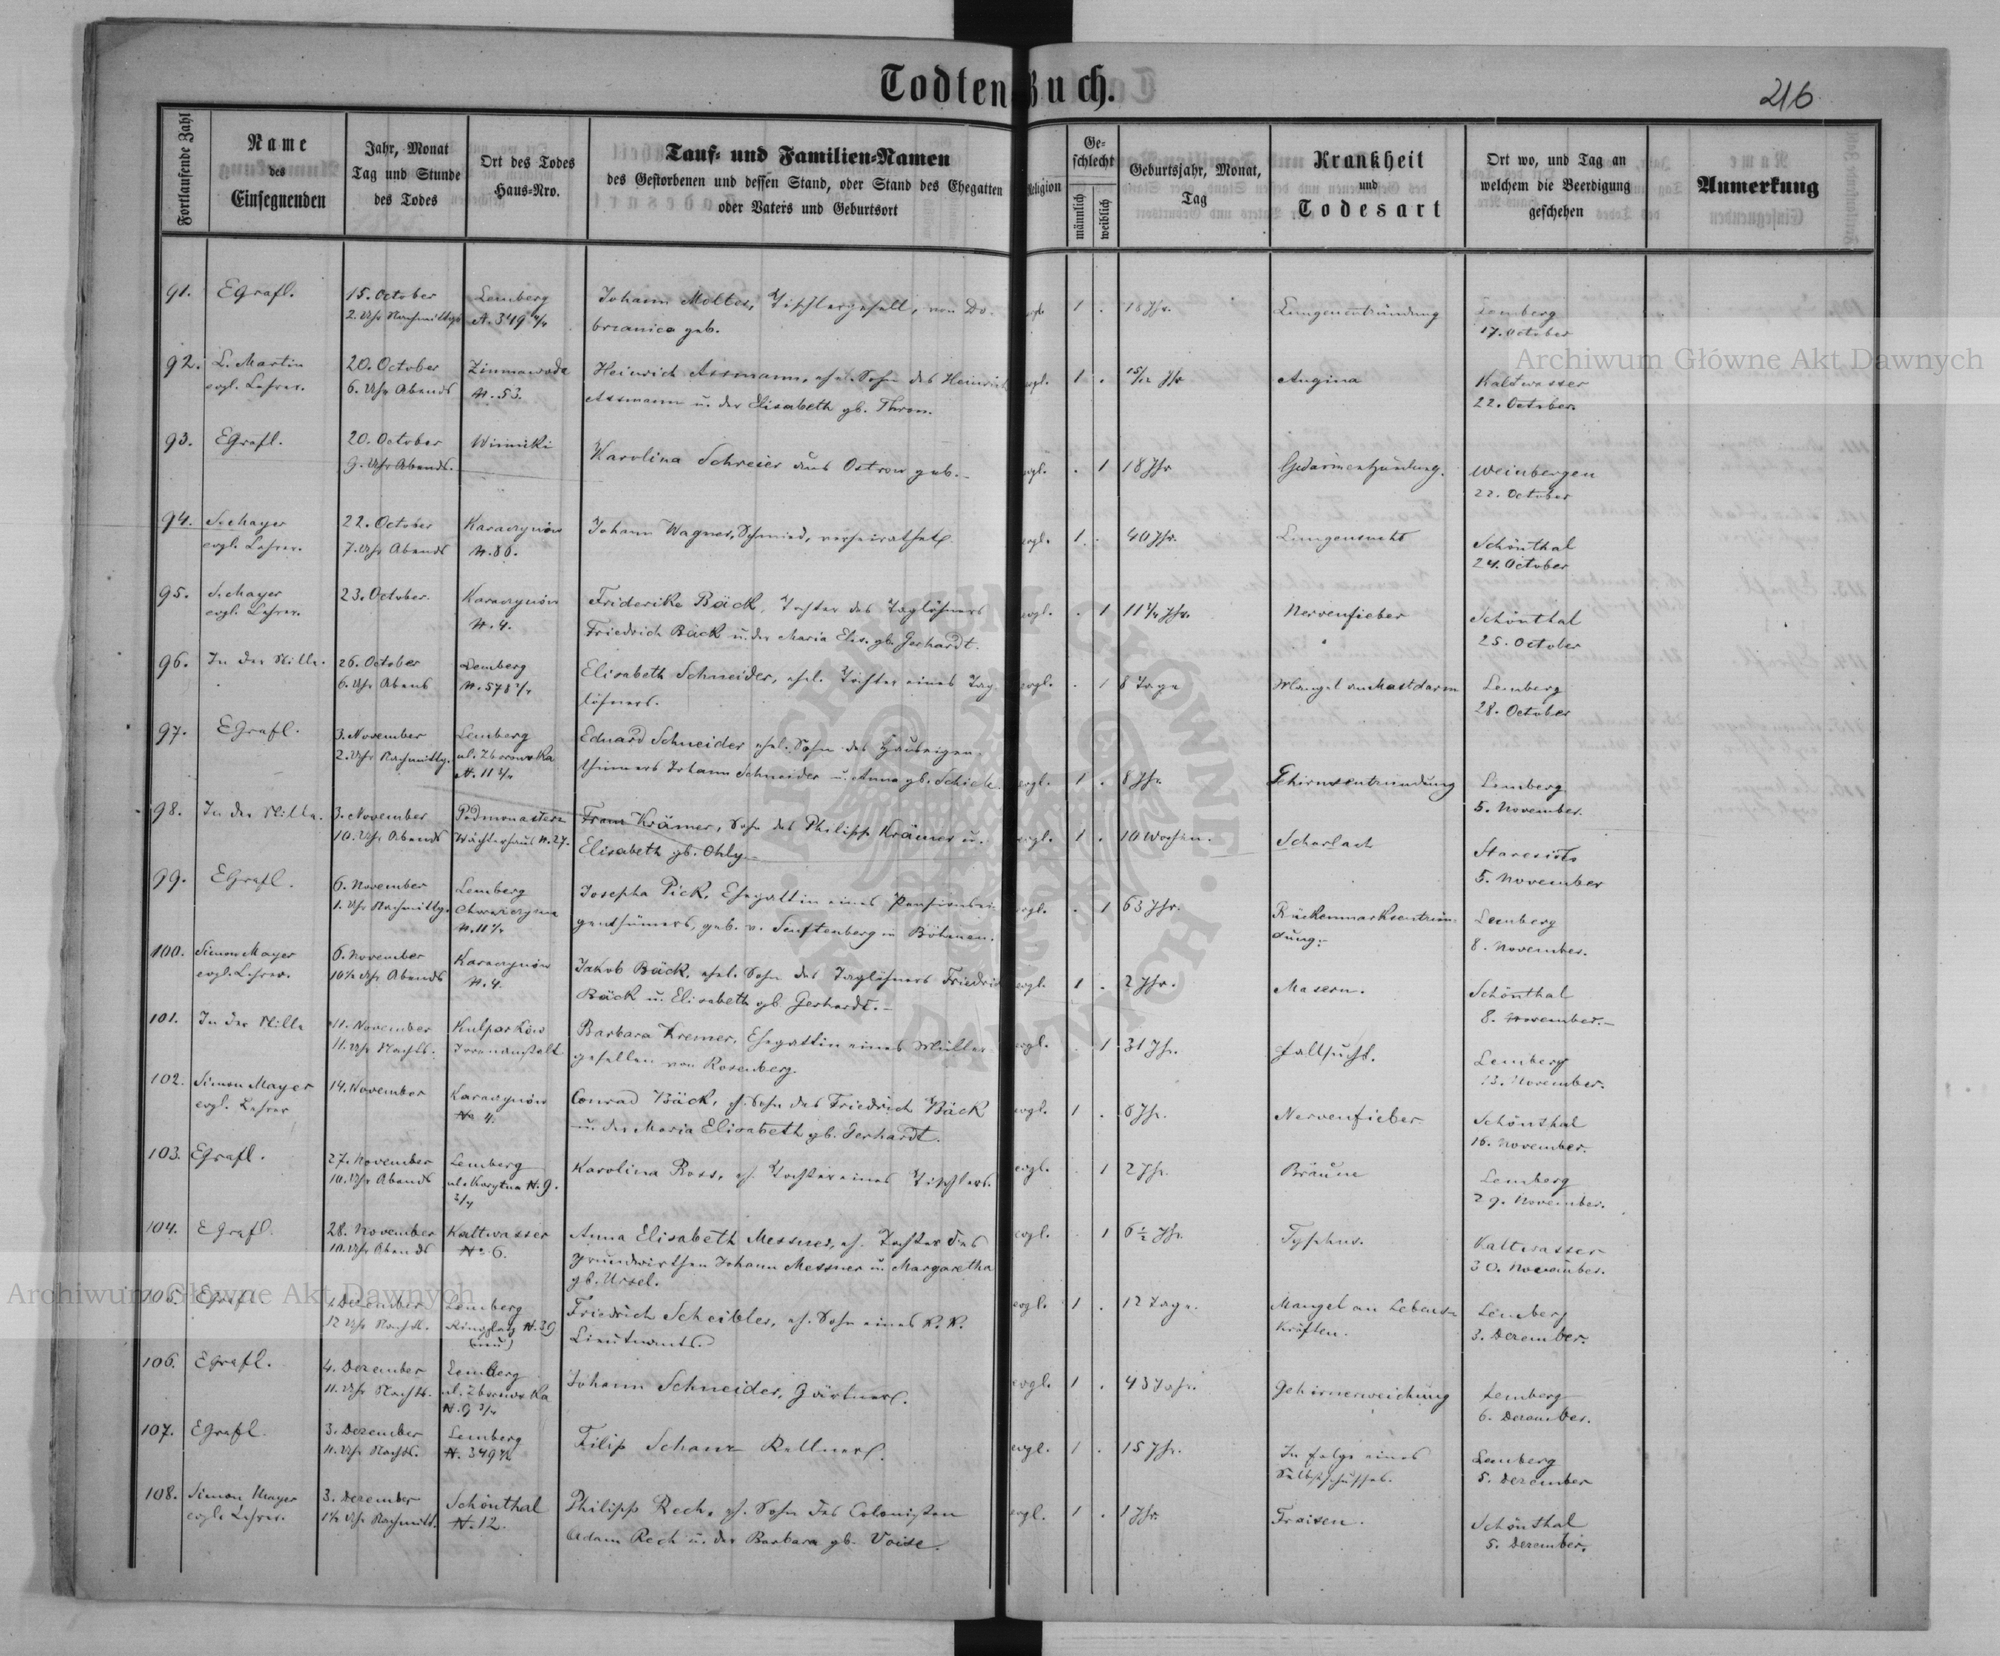 Todten Buch.
216
Fortlaufende Zahl
Name
des
Einsegnenden
Jahr, Monat
Tag und Stunde
des Todes
Ort des Todes
Haus-Nro.
Tauf- und Familien-Namen
des Gestorbenen und dessen Stand, oder Stand des Ehegatten
oder Vaters und Geburtsort
Religion
Ge-
schlecht
männlich
weiblich
Geburtsjahr, Monat,
Tag
Krankheit
und
Todesart
Ort wo, und Tag an
welchem die Beerdigung
geschehen
Anmerkung
91. EGrafl. 15. October Lemberg Johann Moltes, Tischlergesell, von Do- 1 . 18 Jhr. Lungenentzündung Lemberg
2. Uhr Nachmittgs N. 349 4/4 brzanica geb. 17. October
92. L. Martin 20. October Zimnawoda Heinrich Assmann, ehel. Sohn des Heinrich evgl. 1 . 15/12 Jhr Angina Kaltwasser
evgl. Lehrer. 6. Uhr Abends N. 53. Assmann u. der Elisabeth gb. Thron. 22. October.
93. EGrafl. 20. October Winniki Karolina Schreier aus Ostrow geb. evgl. . 1 18 Jhr Weinbergen
9. Uhr Abends. 22. October
94. S. Mayer 22. October Karaczynów Johann Wagner, Schmied, verheirathet. evgl. 1 . 40 Jhr. Lungensucht Schönthal
evgl. Lehrer. 7. Uhr Abends N. 86. 24. October
95. S. Mayer 23. October. Karaczynów Friderike Bäck, Tochter des Taglöhners evgl. . 1 11 1/4 Jhr. Nervenfieber Schönthal
evgl. Lehrer. N. 4. Friedrich Bäck u. der Maria Elis. gb. Gerhardt. 25. October
96. In der Stille. 26. October Lemberg Elisabeth Schneider, ehel. Tochter eines Tag- evgl. . 1 8 Tage Mangel an Mastdarm Lemberg
6. Uhr Abens N. 578 löhners. 28. October
97. EGrafl. 3. November Lemberg Eduard Schneider ehel. Sohn des Hauseigen-
2. Uhr Nachmittg. ul. Zborowska thümers Johann Schneider u. Anna gb. Schick. evgl. 1 . 8 Jhr. Gehirnsentzündung Lemberg
N. 11 5. November.
98. In der Stille. 3. November Podmonasterz Franz Krämer, Sohn des Philipp Krämer u. evgl. 1 . 10 Wochen. Scharlach Staresioło
10. Uhr Abends Wächterhaus N. 27. Elisabeth gb. Ohly. 5. November
99. EGrafl. 6. November Lemberg Josepha Pick, Ehegattin eines evgl. . 1 63 Jhr. Rückenmarksentzün- Lemberg
1. Uhr Nachmittg. N. 11 genthümers, geb. v. Senftenberg in Böhmen. dung. 8. November.
100. Simon Mayer 6. November Karaczynów Jakob Bäck, ehel. Sohn des Taglöhners Friedrich evgl. 1 . 2 Jhr. Masern. Schönthal
evgl. Lehrer. 10 1/2 Uhr Abends N. 4. Bäck u. Elisabeth gb. Gerhardt. 8. November.
101. In der Stille 11. November Kulparków Barbara Kremer, Ehegattin eines Müller- evgl. . 1 31 Jhr. Fallsucht. Lemberg
11. Uhr Nachts. Irrenanstalt gesellen von Rosenberg. 13. November.
102. Simon Mayer 14. November Karaczynów Conrad Bäck, eh. Sohn des Friedrich Bäck evgl. 1 . 6 Jhr. Nervenfieber Schönthal
evgl. Lehrer No 4. u. der Maria Elisabeth gb. Gerhardt. 16. November.
103. EGrafl. 27. November Lemberg Karolina Ross, eh. Tochter eines Tischlers. evgl. . 1 2 Jhr. Bräune Lemberg
10. Uhr Abends N. 9. 29. November.
104. EGrafl. 28. November Kaltwasser Anna Elisabeth Messner, eh. Tochter des evgl. 1 6 1/2 Jhr. Typhus. Kaltwasser
10. Uhr Abends No 6. Grundwirthen Johann Messner u. Margaretha 30. November.
gb. Ursel.
105. EGrafl. 1. Dezember Lemberg Friedrich Scheibler, eh. Sohn eines K. K. evgl. 1 . 12 Tage. Mangel an Lebens- Lemberg
12 Uhr Nachts. Ringplatz N. 39 Lieutnants. kräften. 3. Dezember.
(neu)
106. EGrafl. 4. Dezember Lemberg Johann Schneider, Gärtner. evgl. 1 . 43 Jahr. Gehirnerweichung Lemberg
11. Uhr Nachts. ul. Zborowska 6. Dezember.
N. 9 3/4
107. EGrafl. 3. Dezember Lemberg Filip Schanz Kellner. evgl. 1 . 15 Jhr. In folge eines Lemberg
11. Uhr Nachts. N. 349 Selbstschusses. 5. Dezember
108. Simon Mayer 3. Dezember Schönthal Philipp Rech, eh. Sohn des Colonisten evgl. 1 . 1 Jhr. Fraisen. Schönthal
evgl. Lehrer. 1 1/2 Uhr Nachmitt. N. 12. Adam Rech u. der Barbara gb. Voise. 5. Dezember.
Archiwum Główne Akt Dawnych
Archiwum Główne Akt Dawnych
ARCHIWUM GŁÓWNE AKT DAWNYCH